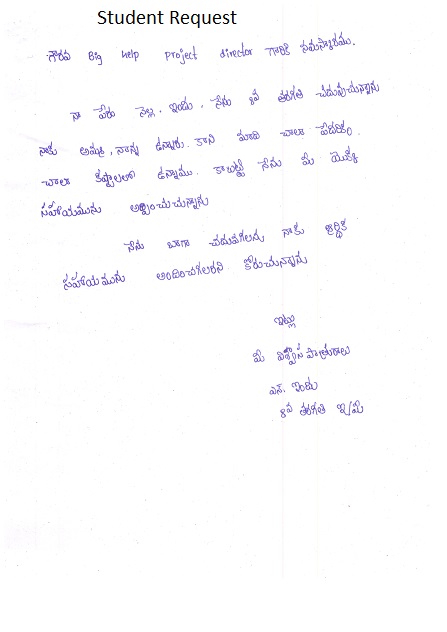 Student Request
గౌరవ Big help project director గారికి నమస్కారము.
నా పేరు నెల్ల. ఇందు, నేను 8వ తరగతి చదువుచున్నాను
నాకు అమ్మ, నాన్న ఉన్నారు. కాని మాది చాలా పేదరికం.
చాలా కష్టాలలో ఉన్నాము. కాబట్టి నేను మీ యొక్క
సహాయమును అర్ధించుచున్నాను
నేను బాగా చదువగలను నాకు ఆర్థిక
సహాయమును అందించగలరని కోరుచున్నాను
ఇట్లు
మీ విశ్వాస పాత్రురాలు
ఎన్. ఇందు
8వ తరగతి ఇ/మీ